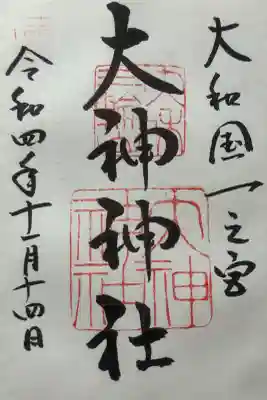 大和国一之宮
大神神社
令和四年十一月十四日
大神
神社